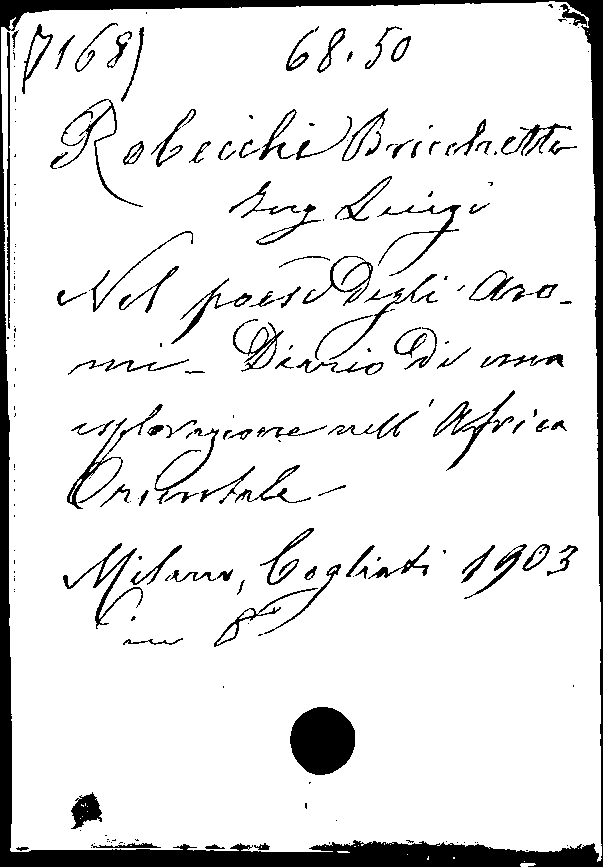 (7168) 68.50
Robecchi Bricchetto
Ing Luigi
Nel paese Degli Aro-
mi - Diario Di una
esplorazione nell' Africa
Orientale -
Milano, Cogliati 1903
in 8°